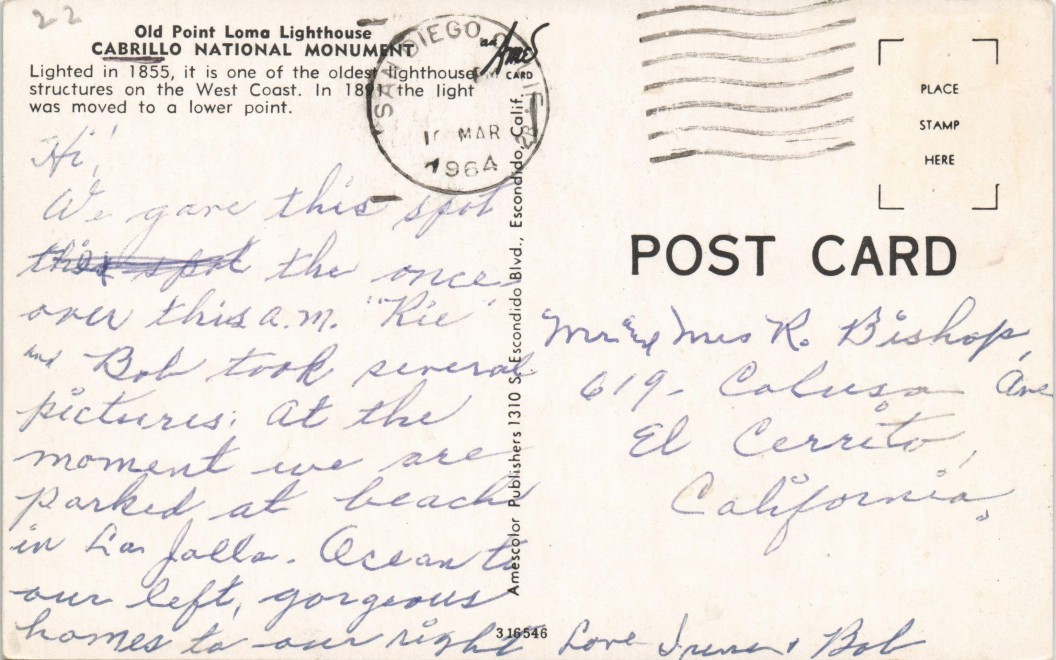 22
Old Point Loma Lighthouse
CABRILLO NATIONAL MONUMENT
Lighted in 1855, it is one of the oldest lighthouse
structures on the West Coast. In 1891 the light
was moved to a lower point.
SAN DIEGO, CALIF.
MAR
1964
an Ames CARD
PLACE
STAMP
HERE
POST CARD
Hi,
We gave this spot
this spot the once
over this a.m. "Rie"
and Bob took several
pictures. At the
moment we are
parked at beach
in La Jolla. Ocean to
our left, gorgeous
homes to our right
Love Irene & Bob
Amescolor Publishers 1310 S. Escondido Blvd., Escondido, Calif.
316546
Mr and Mrs R. Bishop,
619- Colusa Ave
El Cerrito,
California.